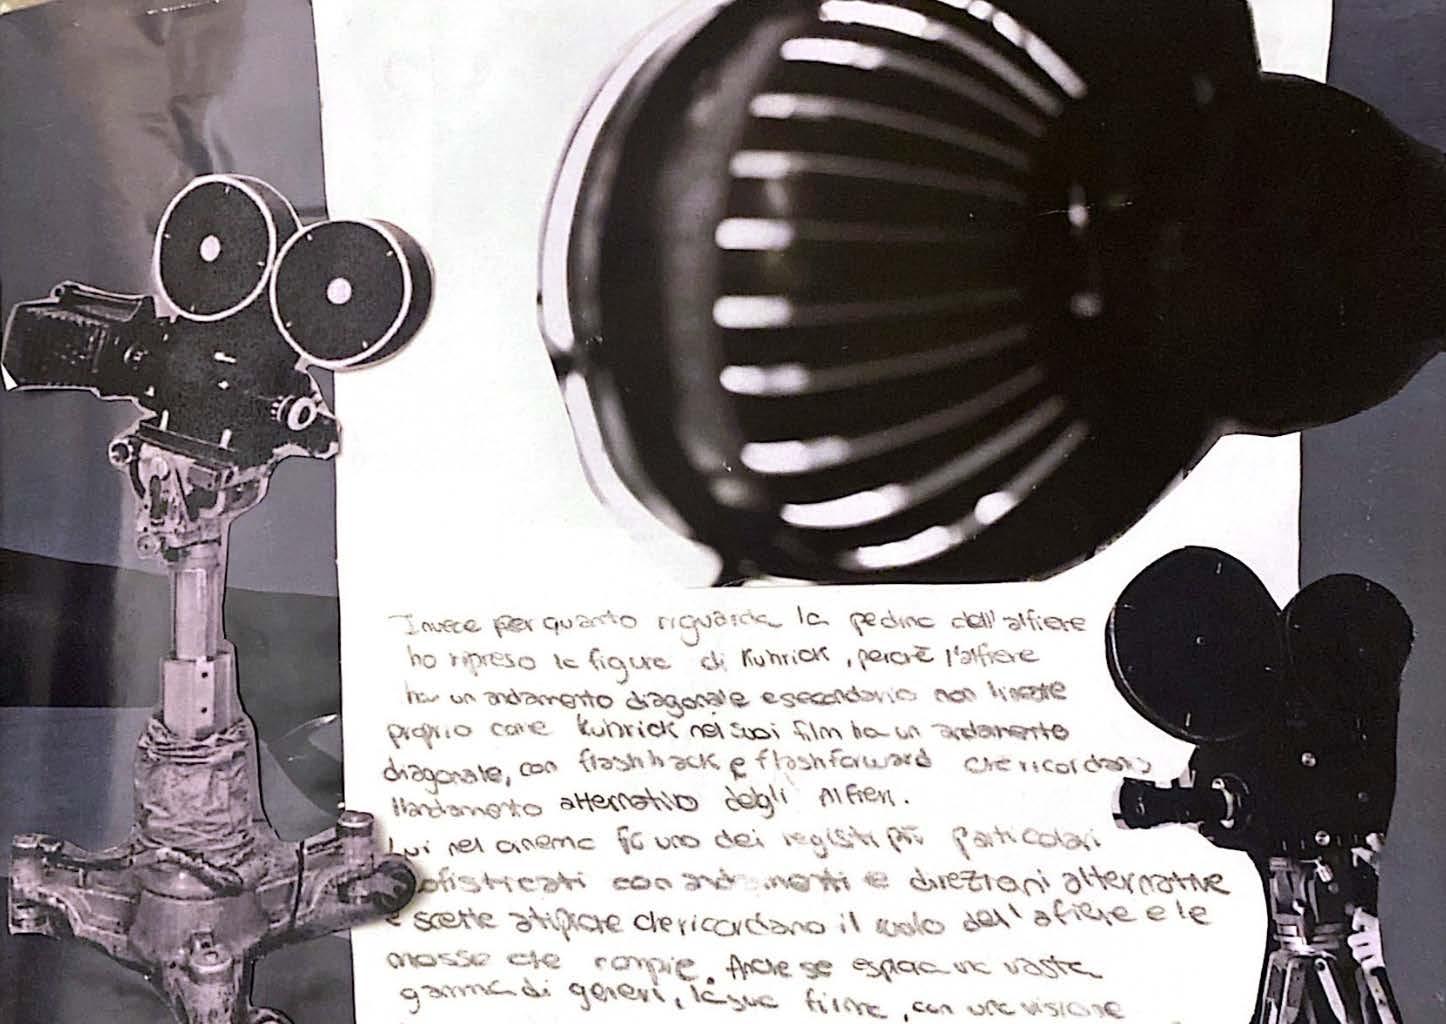 Invece per quanto riguarda la pedina dell'alfiere
ho ripreso la figura di Kubrick, perchè l'alfiere
ha un andamento diagonale e secondario non lineare
proprio come Kubrick nei suoi film ha un andamento
diagonale, con flashback e flashforward che ricordano
l'andamento alternativo degli Alfieri.
Lui nel cinema fu uno dei registi più particolari
sofisticati con andamenti e direzioni alternative
e scelte atipiche che ricordano il ruolo dell'afiere e le
mosse che compie. Anche se esplora una vasta
gamma di generi, la sua firma, con una visione